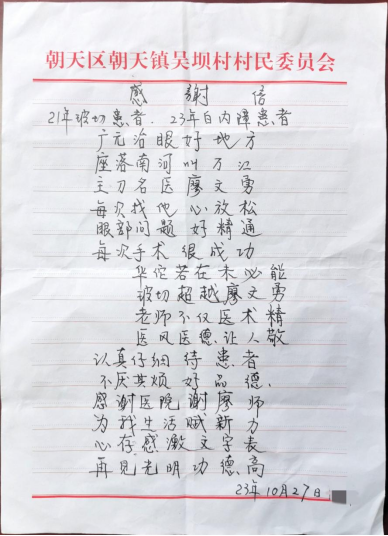 朝天区朝天镇吴坝村村民委员会
感谢信
21年玻切患者、23年白内障患者
广元治眼好地方
座落南河叫万江
主刀名医廖文勇
每次找他心放松
眼部问题好精通
每次手术很成功
华佗若在未必能
玻切超越廖文勇
老师不仅医术精
医风医德让人敬
认真仔细待患者
不厌其烦好品德、
感谢医院谢廖师
为我生活赋新力
心存感激文字表
再见光明功德高
23年10月27日